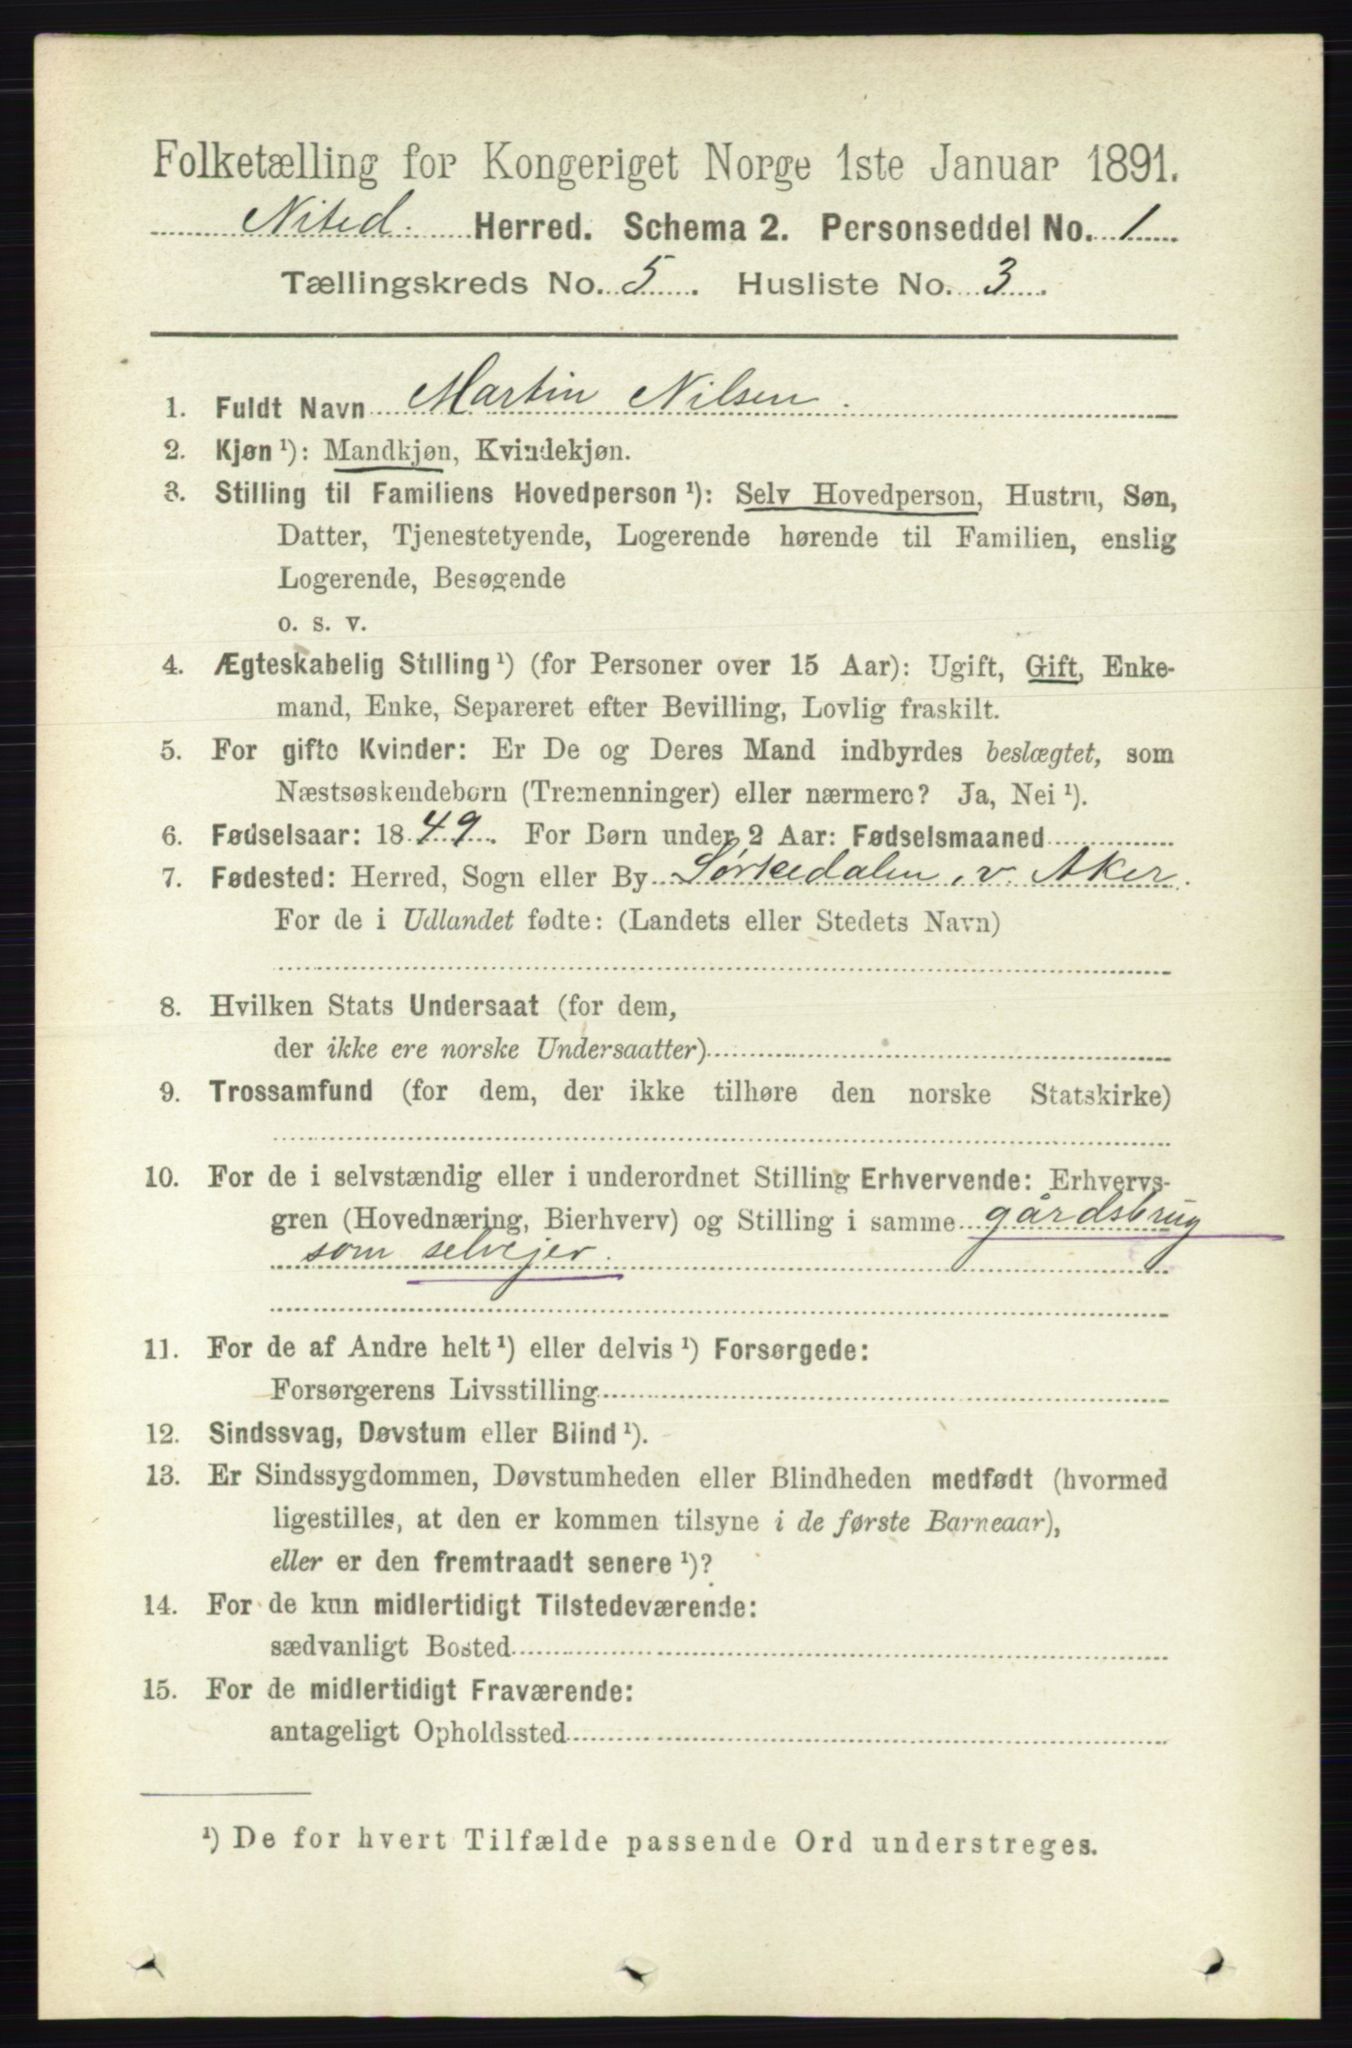 Folketælling for Kongeriget Norge 1ste Januar 1891.
Nited. Herred. Schema 2. Personseddel No. 1
Tællingskreds No. 5. Husliste No. 3.
1. Fuldt Navn Martin Nilsen.
2. Kjøn ¹): Mandkjøn, Kvindekjøn.
3. Stilling til Familiens Hovedperson ¹): Selv Hovedperson, Hustru, Søn,
Datter, Tjenestetyende, Logerende hørende til Familien, enslig
Logerende, Besøgende
o. s. v.
4. Ægteskabelig Stilling ¹) (for Personer over 15 Aar): Ugift, Gift, Enke-
mand, Enke, Separeret efter Bevilling, Lovlig fraskilt.
5. For gifte Kvinder: Er De og Deres Mand indbyrdes beslægtet, som
Næstsøskendebørn (Tremenninger) eller nærmere? Ja, Nei ¹).
6. Fødselsaar: 1849. For Børn under 2 Aar: Fødselsmaaned
7. Fødested: Herred, Sogn eller By Sørkedalen, v. Aker.
For de i Udlandet fødte: (Landets eller Stedets Navn)
8. Hvilken Stats Undersaat (for dem,
der ikke ere norske Undersaatter)
9. Trossamfund (for dem, der ikke tilhøre den norske Statskirke)
10. For de i selvstændig eller i underordnet Stilling Erhvervende: Erhvervs-
gren (Hovednæring, Bierhverv) og Stilling i samme gårdsbrug
som selvejer.
11. For de af Andre helt ¹) eller delvis ¹) Forsørgede:
Forsørgerens Livsstilling
12. Sindssvag, Døvstum eller Blind ¹).
13. Er Sindssygdommen, Døvstumheden eller Blindheden medfødt (hvormed
ligestilles, at den er kommen tilsyne i de første Barneaar),
eller er den fremtraadt senere ¹)?
14. For de kun midlertidigt Tilstedeværende:
sædvanligt Bosted
15. For de midlertidigt Fraværende:
antageligt Opholdssted
¹) De for hvert Tilfælde passende Ord understreges.